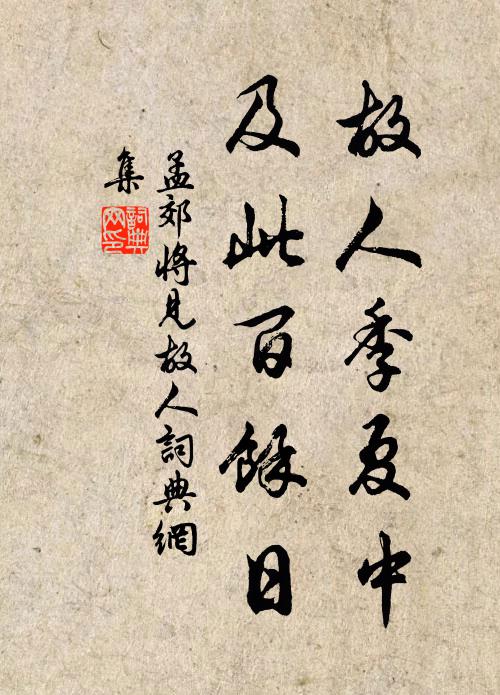 故人季夏中
及此百餘日
孟郊將見故人詞典網
集
詞典網印